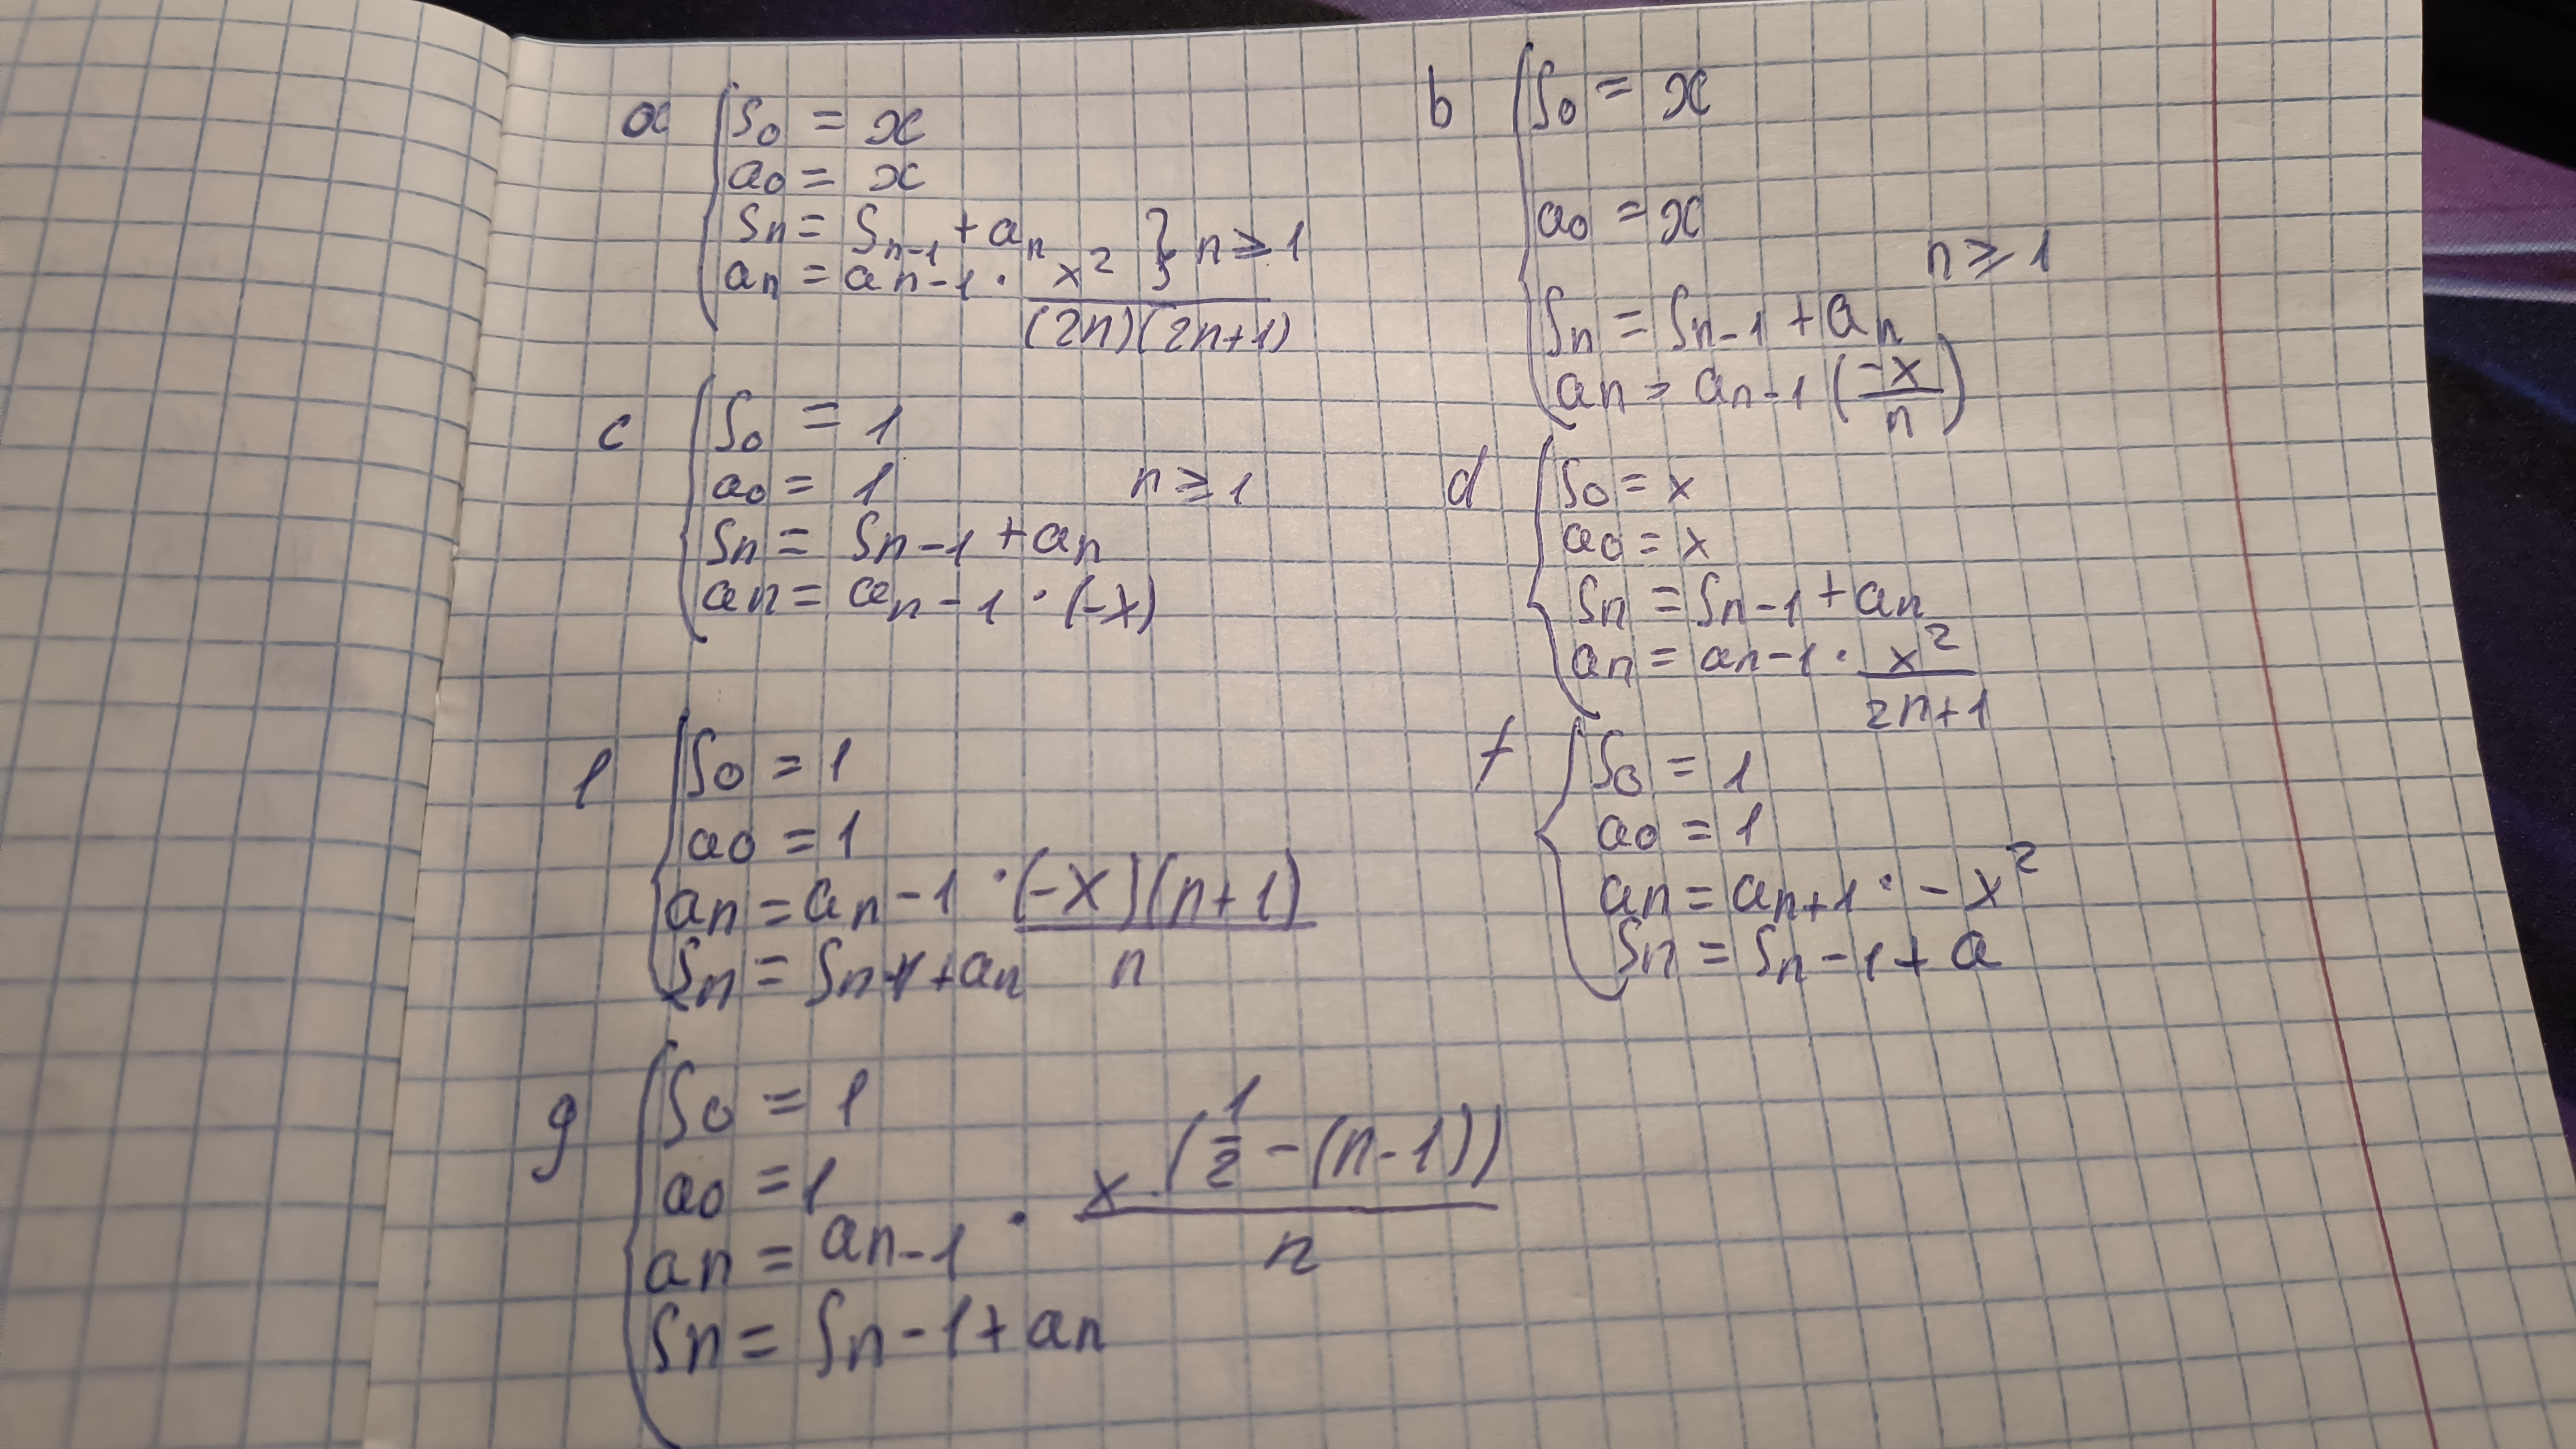 a
S₀ = x
a₀ = x
Sₙ = Sₙ₋₁ + aₙ
aₙ = aₙ₋₁ · x² / (2n)(2n+1) } n ≥ 1
b
S₀ = x
a₀ = x
n ≥ 1
Sₙ = Sₙ₋₁ + aₙ
aₙ = aₙ₋₁ (-x/n)
c
S₀ = 1
a₀ = 1
n ≥ 1
Sₙ = Sₙ₋₁ + aₙ
aₙ = aₙ₋₁ · (-x)
d
S₀ = x
a₀ = x
Sₙ = Sₙ₋₁ + aₙ
aₙ = aₙ₋₁ · x² / 2n+1
e
S₀ = 1
a₀ = 1
aₙ = aₙ₋₁ · (-x)(n+1) / n
Sₙ = Sₙ₋₁ + aₙ
f
S₀ = 1
a₀ = 1
aₙ = aₙ₊₁ · -x²
Sₙ = Sₙ₋₁ + a
g
S₀ = 1
a₀ = 1
aₙ = aₙ₋₁ · x · (1/2 - (n-1)) / n
Sₙ = Sₙ₋₁ + aₙ